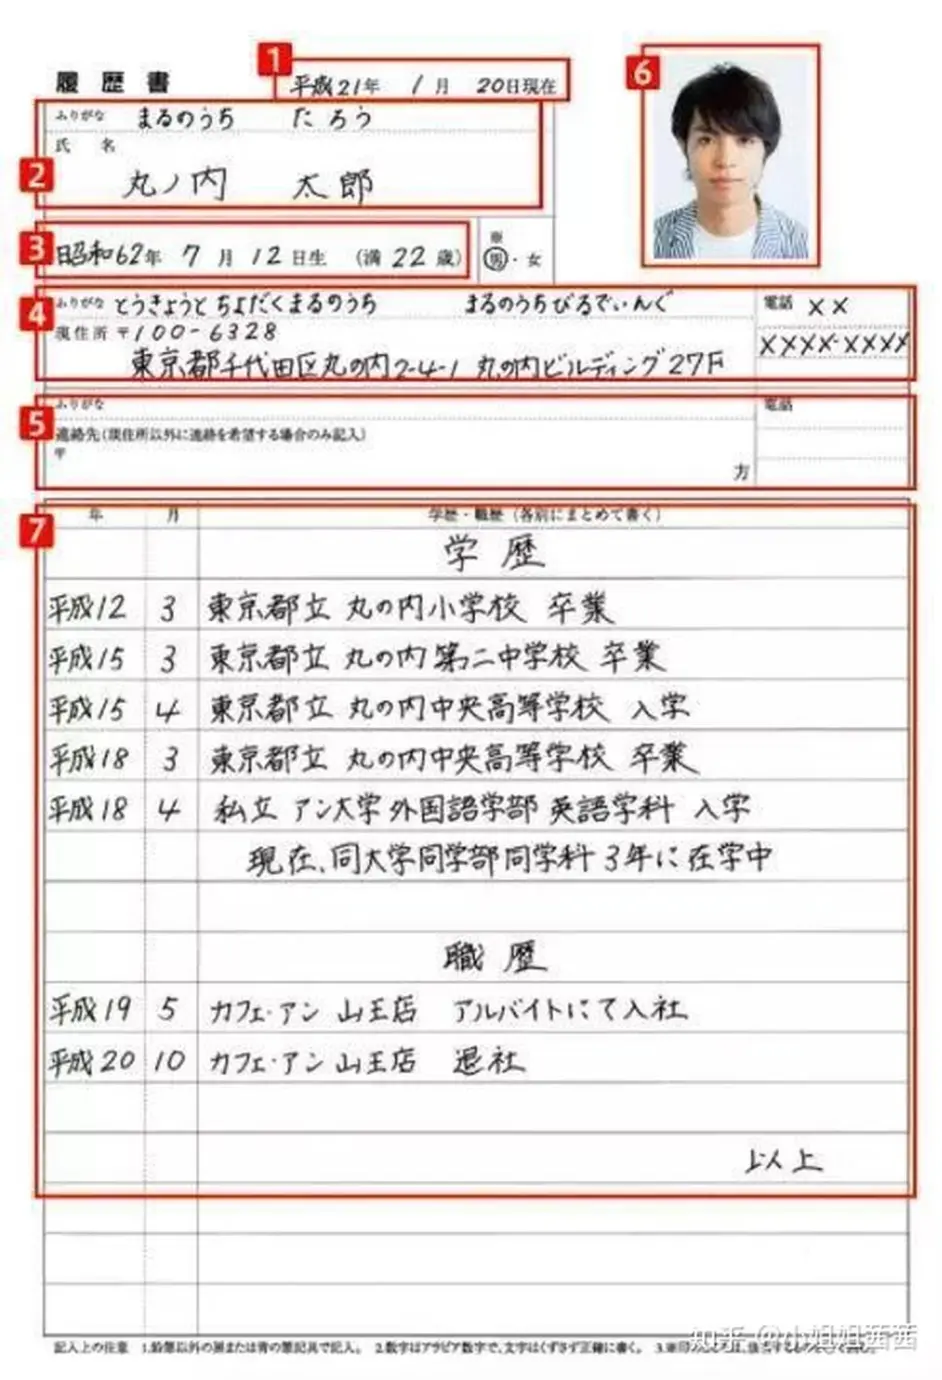 1
履歴書 平成21年 1月 20日現在
6
ふりがな まるのうち たろう
氏 名
2
丸ノ内 太郎
3
昭和62年 7月 12日生 (満 22 歳) ※ 男・女
4
ふりがな とうきょうと ちよだくまるのうち まるのうちびるでぃんぐ 電話 ××
現住所 〒100-6328 ××××-××××
東京都千代田区丸の内2-4-1 丸の内ビルディング27F
5
ふりがな 電話
連絡先(現住所以外に連絡を希望する場合のみ記入)
〒
方
7
年 月 学歴・職歴(各別にまとめて書く)
学歴
平成12 3 東京都立 丸の内小学校 卒業
平成15 3 東京都立 丸の内第二中学校 卒業
平成15 4 東京都立 丸の内中央高等学校 入学
平成18 3 東京都立 丸の内中央高等学校 卒業
平成18 4 私立 アン大学外国語学部 英語学科 入学
現在、同大学同学部同学科3年に在学中
職歴
平成19 5 カフェ・アン 山王店 アルバイトにて入社
平成20 10 カフェ・アン 山王店 退社
以上
記入上の注意 1.鉛筆以外の黒または青の筆記具で記入。 2.数字はアラビア数字で、文字はくずさず正確に書く。
知乎 @小姐姐茜茜